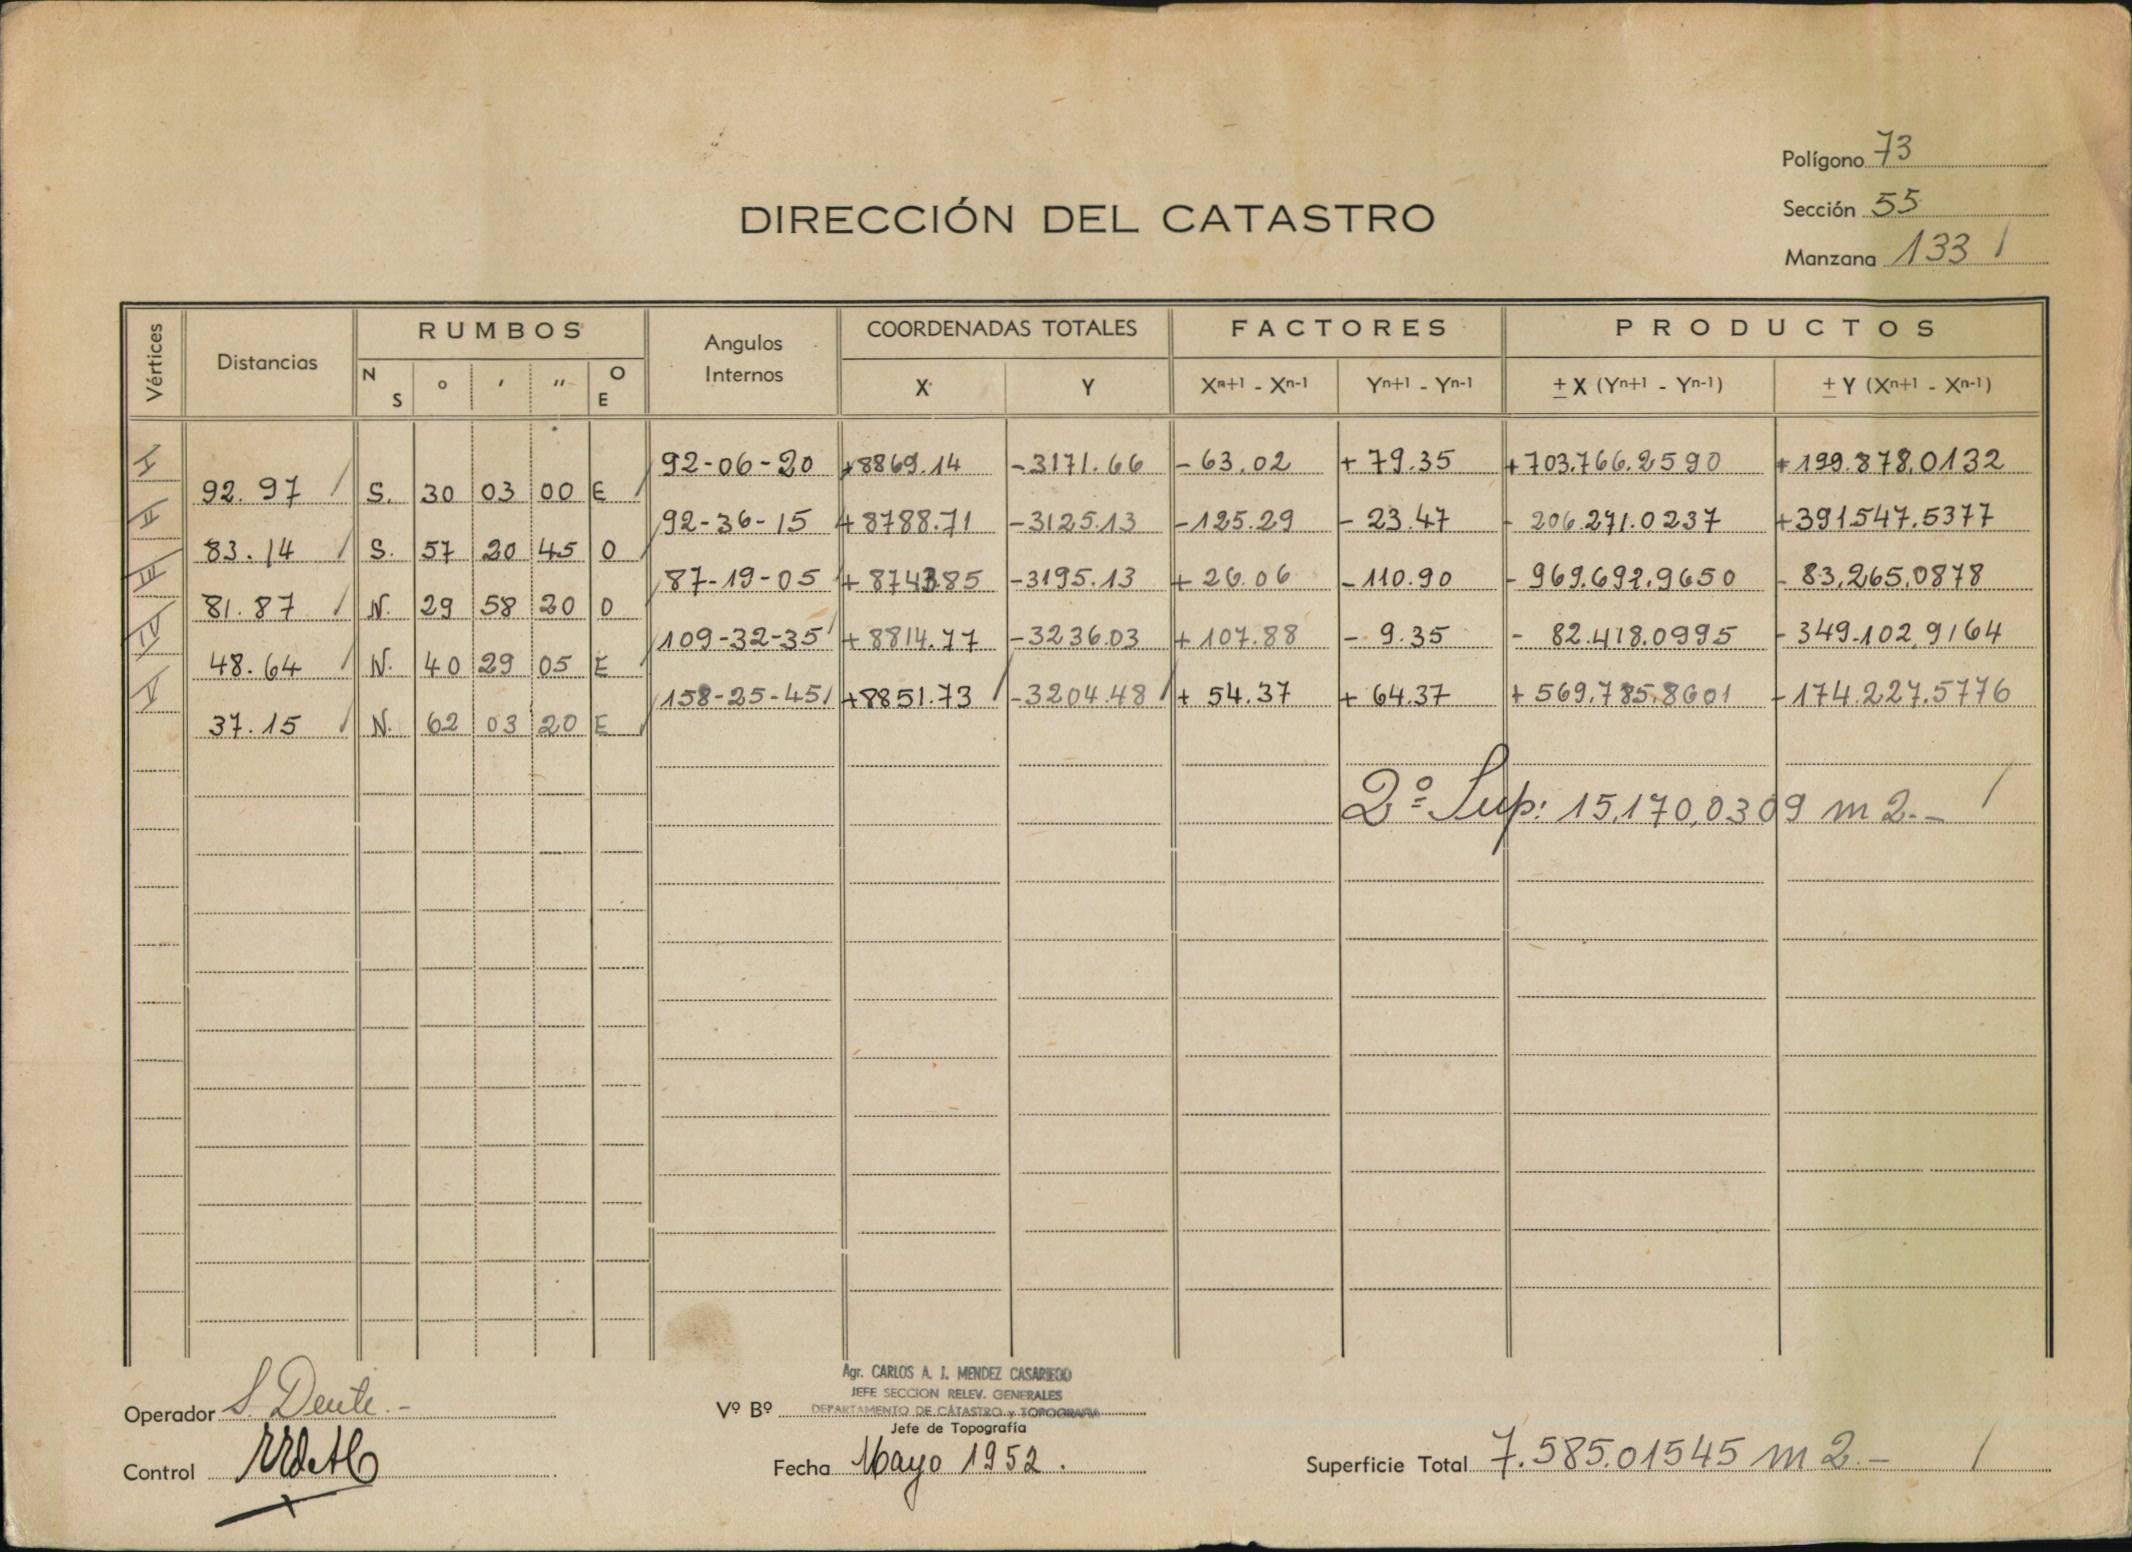 Polígono 73
Sección 55
Manzana 133 /
DIRECCIÓN DEL CATASTRO
Vértices Distancias RUMBOS Angulos Internos COORDENADAS TOTALES FACTORES PRODUCTOS
N S ° ′ ″ O E X Y Xn+1 - Xn-1 Yn+1 - Yn-1 ± X (Yn+1 - Yn-1) ± Y (Xn+1 - Xn-1)
I 92-06-20 +8869.14 -3171.66 -63.02 +79.35 +703.766.2590 +199.878,0132
92.97 / S. 30 03 00 E /
II 92-36-15 +8788.71 -3125.13 -125.29 -23.47 - 206.271.0237 +391547.5377
83.14 / S. 57 20 45 O /
III 87-19-05 +8743.85 -3195.13 +26.06 -110.90 -969.692.9650 -83,265,0878
81.87 / N. 29 58 20 O /
IV 109-32-35 +8814.77 -3236.03 +107.88 -9.35 -82.418.0995 -349.102,9164
48.64 / N. 40 29 05 E /
V 158-25-45 +8851.73 / -3204.48 / +54.37 +64.37 +569.785.8601 -174.227.5776
37.15 / N. 62 03 20 E /
2º Sup: 15,170,0309 m2.- /
Operador S. Dente.-
Control
Vº Bº
Agr. CARLOS A. J. MENDEZ CASARIEGO
JEFE SECCION RELEV. GENERALES
DEPARTAMENTO DE CATASTRO y TOPOGRAFIA
Jefe de Topografía
Fecha Mayo 1952.
Superficie Total 7.585.01545 m2.- /